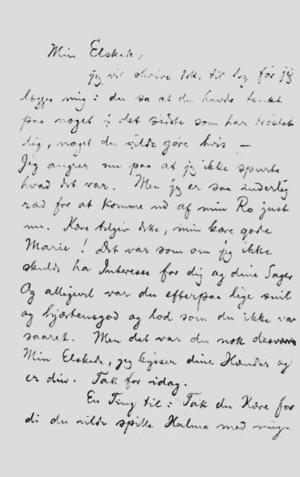 Min Elskede,
jeg vil skrive lidt til Dig før jeg
lægger mig: du sa at du havde tænkt
paa noget i det sidste som har trøstet
dig, noget du vilde gøre hvis –
Jeg angrer nu paa at jeg ikke spurte
hvad det var. Men jeg er saa inderlig
ræd for at komme ud af min Ro just
nu. Kære tilgiv det, min kære gode
Marie! Det var som om jeg ikke
skulde ha Interesse for dig og dine Sager
Og alligevel var du efterpaa lige snil
og hjærtensgod og lod som du ikke var
saaret. Men det var du nok desværre
Min Elskede, jeg kysser dine Hænder og
er din. Tak for idag.
En Ting til: Tak du Kære for
di du vilde spille Halma med mig.